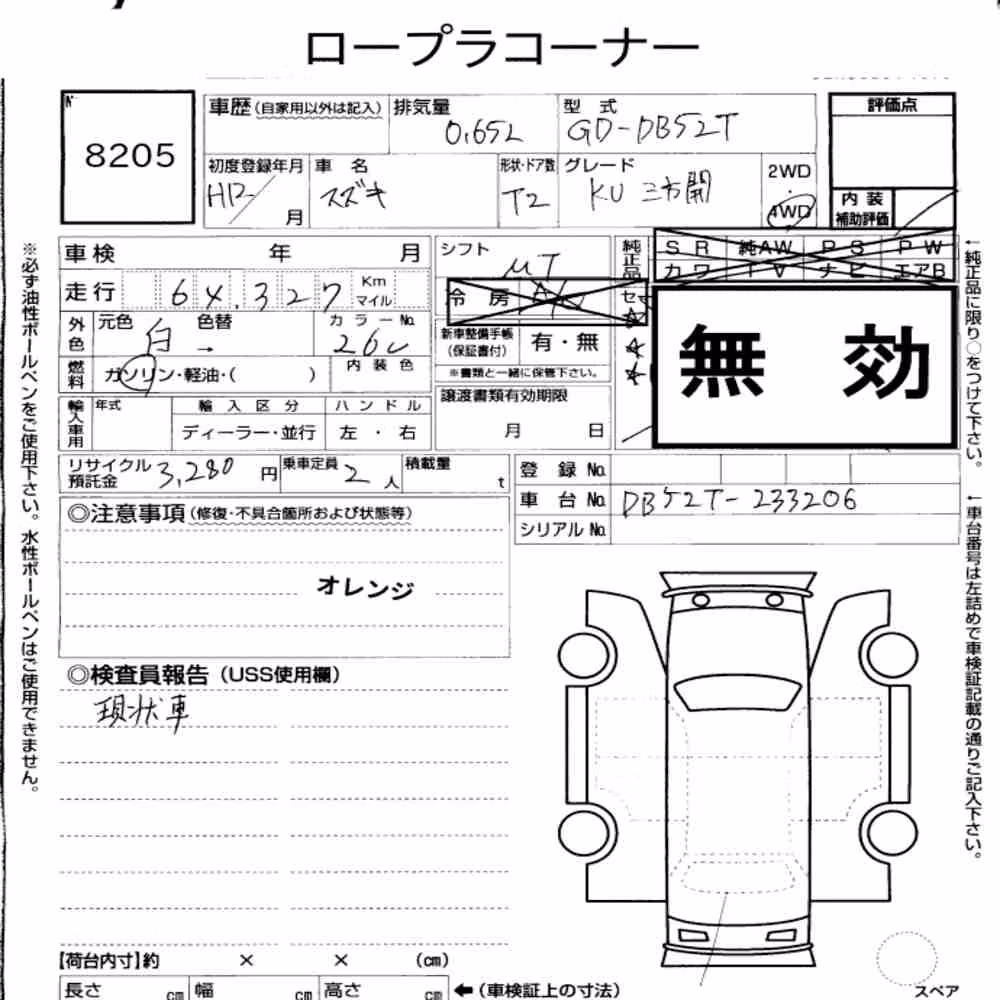 ロープラコーナー
No.
8205
車歴(自家用以外は記入)
排気量
0.652
型 式
GD-DB52T
評価点
初度登録年月
H12
月
車 名
スズキ
形状・ドア数
T2
グレード
KU 三方開
2WD
4WD
内 装
補助評価
車検 年 月
シフト
MT
純正品
SR 純AW PS PW
カワ TV ナビ エアB
走行 64,327 Km マイル
冷 房
外色
元色 白 色替 →
カラーNo.
26U
新車整備手帳
(保証書付)
有・無
※書類と一緒に保管下さい。
無 効
燃料
ガソリン・軽油・( )
内 装 色
輸入車用
年式
輸 入 区 分
ディーラー・並行
ハ ン ド ル
左 ・ 右
譲渡書類有効期限
月 日
リサイクル預託金 3,280 円
乗車定員 2 人
積載量 t
登 録 No.
車 台 No. DB52T-233206
シリアル No.
◎注意事項(修復・不具合箇所および状態等)
オレンジ
◎検査員報告(USS使用欄)
現状車
【荷台内寸】約 × × (cm)
長さ cm 幅 cm 高さ cm ←(車検証上の寸法)
スペア
※必ず油性ボールペンをご使用下さい。水性ボールペンはご使用できません。
←純正品に限り○をつけて下さい。
←車台番号は左詰めで車検証記載の通りご記入下さい。